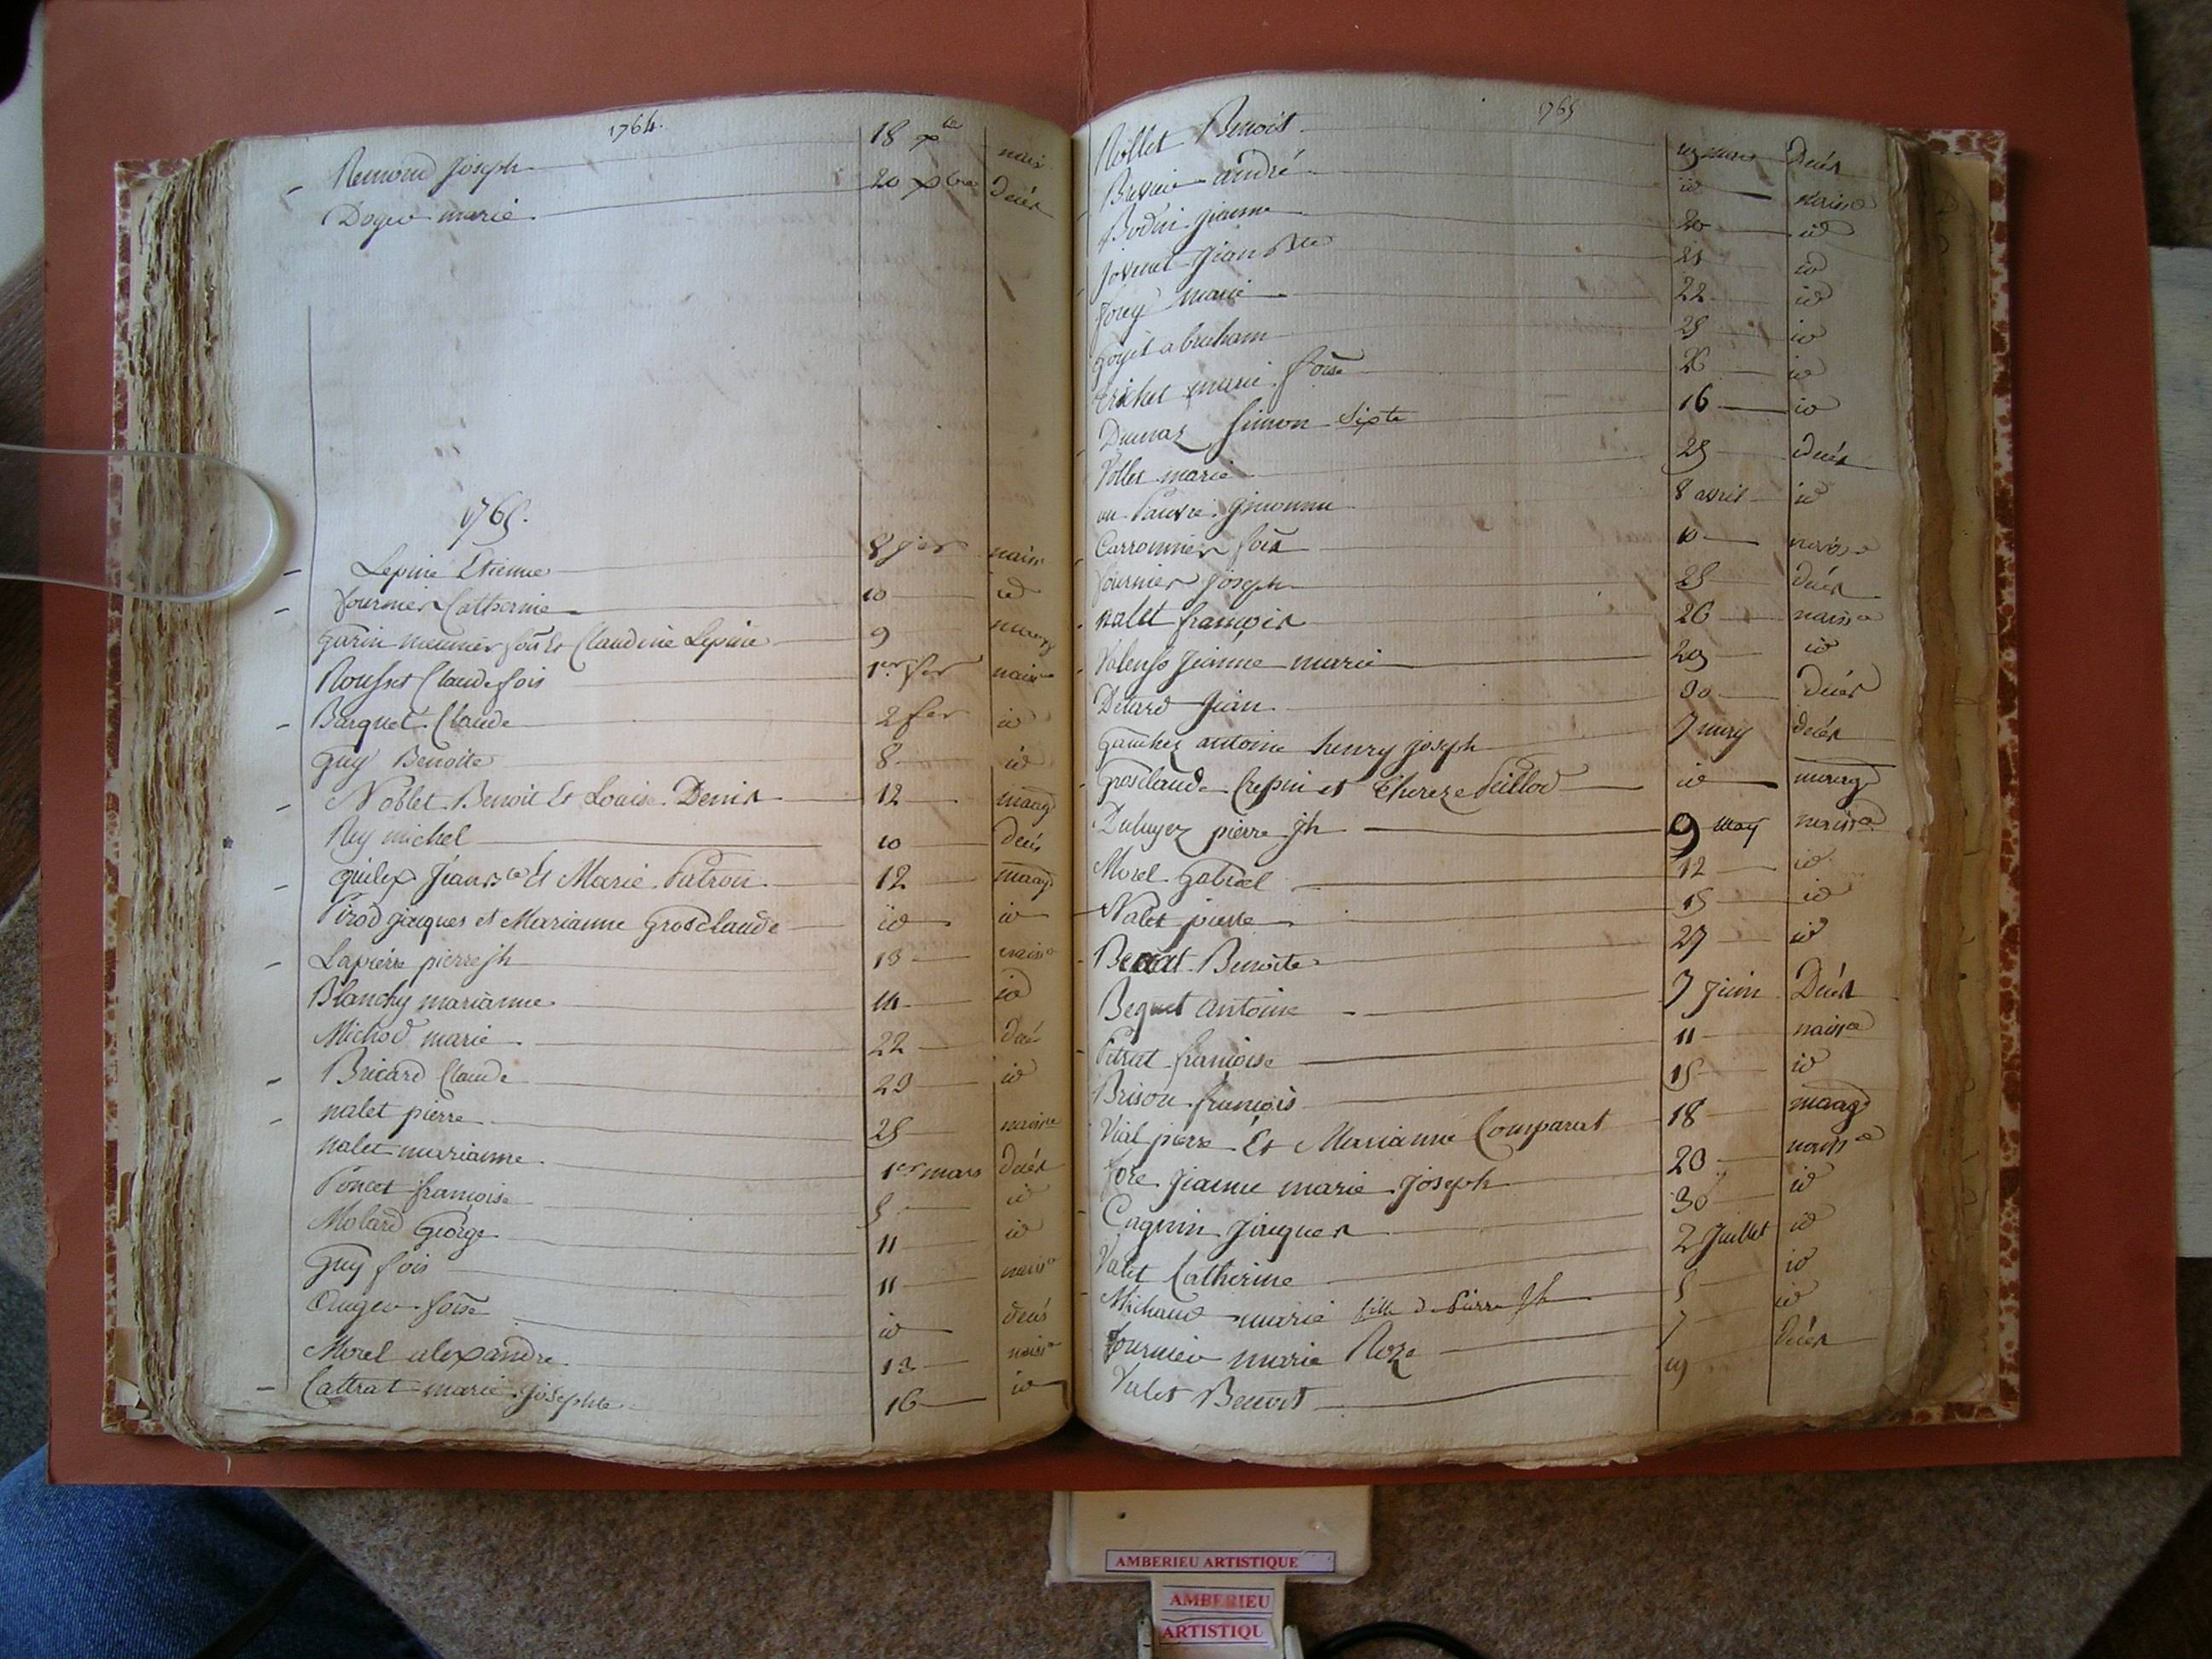 1764.
Remond Joseph 18 xbre naiss
Doger marie 20 xbre décés
1765.
Lepine Etienne 8 jer naiss
fournier Catherine 10 id
garin meunier fois et Claudine Lepine 9 mariag
Rousset Claude fois 1er fer naiss
Barquet Claude 2 fer id
guy Benoite 8 id
Noblet Benoit Et Louise Denis 12 mariag
Rey michel 10 décés
guilex Jean Bte Et Marie Patron 12 mariag
Pirod jacques et Marianne grosclaude id id
Lapierre pierre jh 13 naisse
Blanchy marianne 14 id
Michod marie 22 décés
Bricard Claude 23 id
nalet pierre 25 naisse
nalet marianne 1er mars décés
Poncet françoise 5 id
Molard George 11 id
guy fois 11 naisse
foise id décés
Morel alexandre 13 naisse
Cattrat marie josephte 16 id
1765
Rollet Benoit 19 mars Décés
andré id naisse
Bodin jeanne 20 id
jovenet jean Bte 21 id
forey marie 22 id
goyet abraham 25 id
trichet marie foise 26 id
Dunaz Simon Sixte 16 id
Vollet marie 25 décés
un Pauvre. 8 avril id
Carronnier fois 10 naisse
fournier joseph 25 décés
nalet françois 26 naisse
Valenso jeanne marie 29 id
Détard jean 30 décés
gauchez antoine henry joseph 7 may décés
grosclaude Crepin et Thereze Peillod id mariag
Duluyez pierre jh 9 may naisse
Morel gabriel 12 id
Nalet pierre 15 id
Benoite 27 id
Bequet antoine 7 juin Décés
Petrat françoise 11 naisse
Brison françois 15 id
Vial pierre Et Marianne Comparat 18 mariag
fore jeanne marie joseph 23 naisse
Cagnin jacques 30 id
Valet Catherine 2 Juillet id
Michaud marie fille de Pierre Jh 5 id
fournier marie Roze 7 id
Valet Benoit 19 décés
AMBERIEU ARTISTIQUE
AMBERIEU
ARTISTIQU